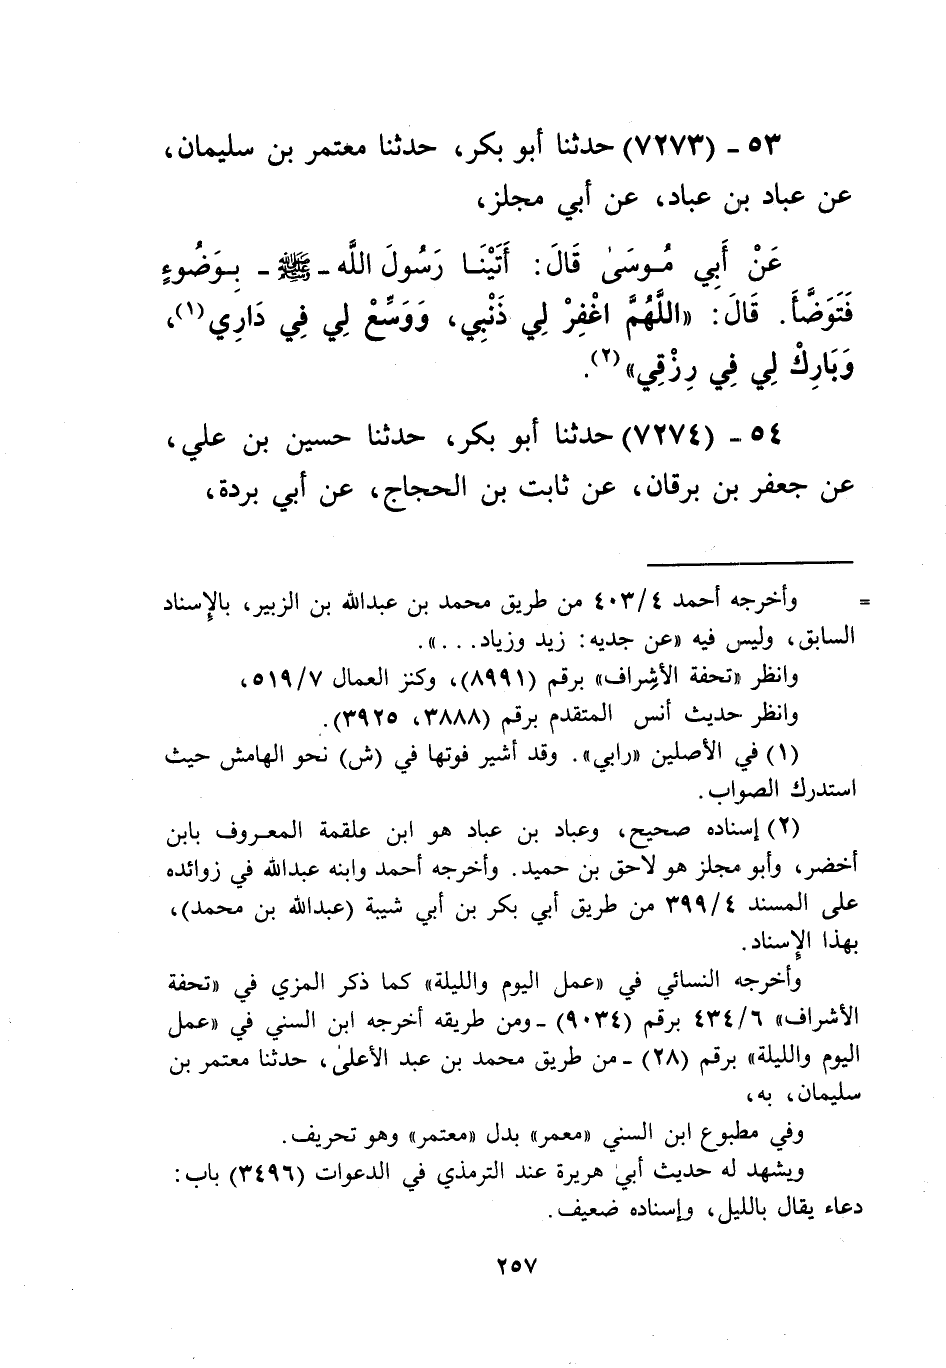 ٥٣ - (٧٢٧٣) حدثنا أبو بكر، حدثنا معتمر بن سليمان،
عن عباد بن عباد، عن أبي مجلز،
عَنْ أَبِي مُوسَىٰ قَالَ: أَتَيْنَا رَسُولَ اللَّه - ﷺ - بِوَضُوءٍ
فَتَوَضَّأَ. قَالَ: «اللَّهُمَّ اغْفِرْ لِي ذَنْبِي، وَوَسِّعْ لِي فِي دَارِي(١)،
وَبَارِكْ لِي فِي رِزْقِي»(٢).
٥٤ - (٧٢٧٤) حدثنا أبو بكر، حدثنا حسين بن علي،
عن جعفر بن برقان، عن ثابت بن الحجاج، عن أبي بردة،
= وأخرجه أحمد ٤٠٣/٤ من طريق محمد بن عبدالله بن الزبير، بالإسناد
السابق، وليس فيه «عن جديه: زيد وزياد...».
وانظر «تحفة الأشراف» برقم (٨٩٩١)، وكنز العمال ٥١٩/٧،
وانظر حديث أنس المتقدم برقم (٣٨٨٨، ٣٩٢٥).
(١) في الأصلين «رابي». وقد أشير فوتها في (ش) نحو الهامش حيث
استدرك الصواب.
(٢) إسناده صحيح، وعباد بن عباد هو ابن علقمة المعروف بابن
أخضر، وأبو مجلز هو لاحق بن حميد. وأخرجه أحمد وابنه عبدالله في زوائده
على المسند ٣٩٩/٤ من طريق أبي بكر بن أبي شيبة (عبدالله بن محمد)،
بهذا الإسناد.
وأخرجه النسائي في «عمل اليوم والليلة» كما ذكر المزي في «تحفة
الأشراف» ٤٣٤/٦ برقم (٩٠٣٤) - ومن طريقه أخرجه ابن السني في «عمل
اليوم والليلة» برقم (٢٨) - من طريق محمد بن عبد الأعلىٰ، حدثنا معتمر بن
سليمان، به،
وفي مطبوع ابن السني «معمر» بدل «معتمر» وهو تحريف.
ويشهد له حديث أبي هريرة عند الترمذي في الدعوات (٣٤٩٦) باب:
دعاء يقال بالليل، وإسناده ضعيف.
٢٥٧